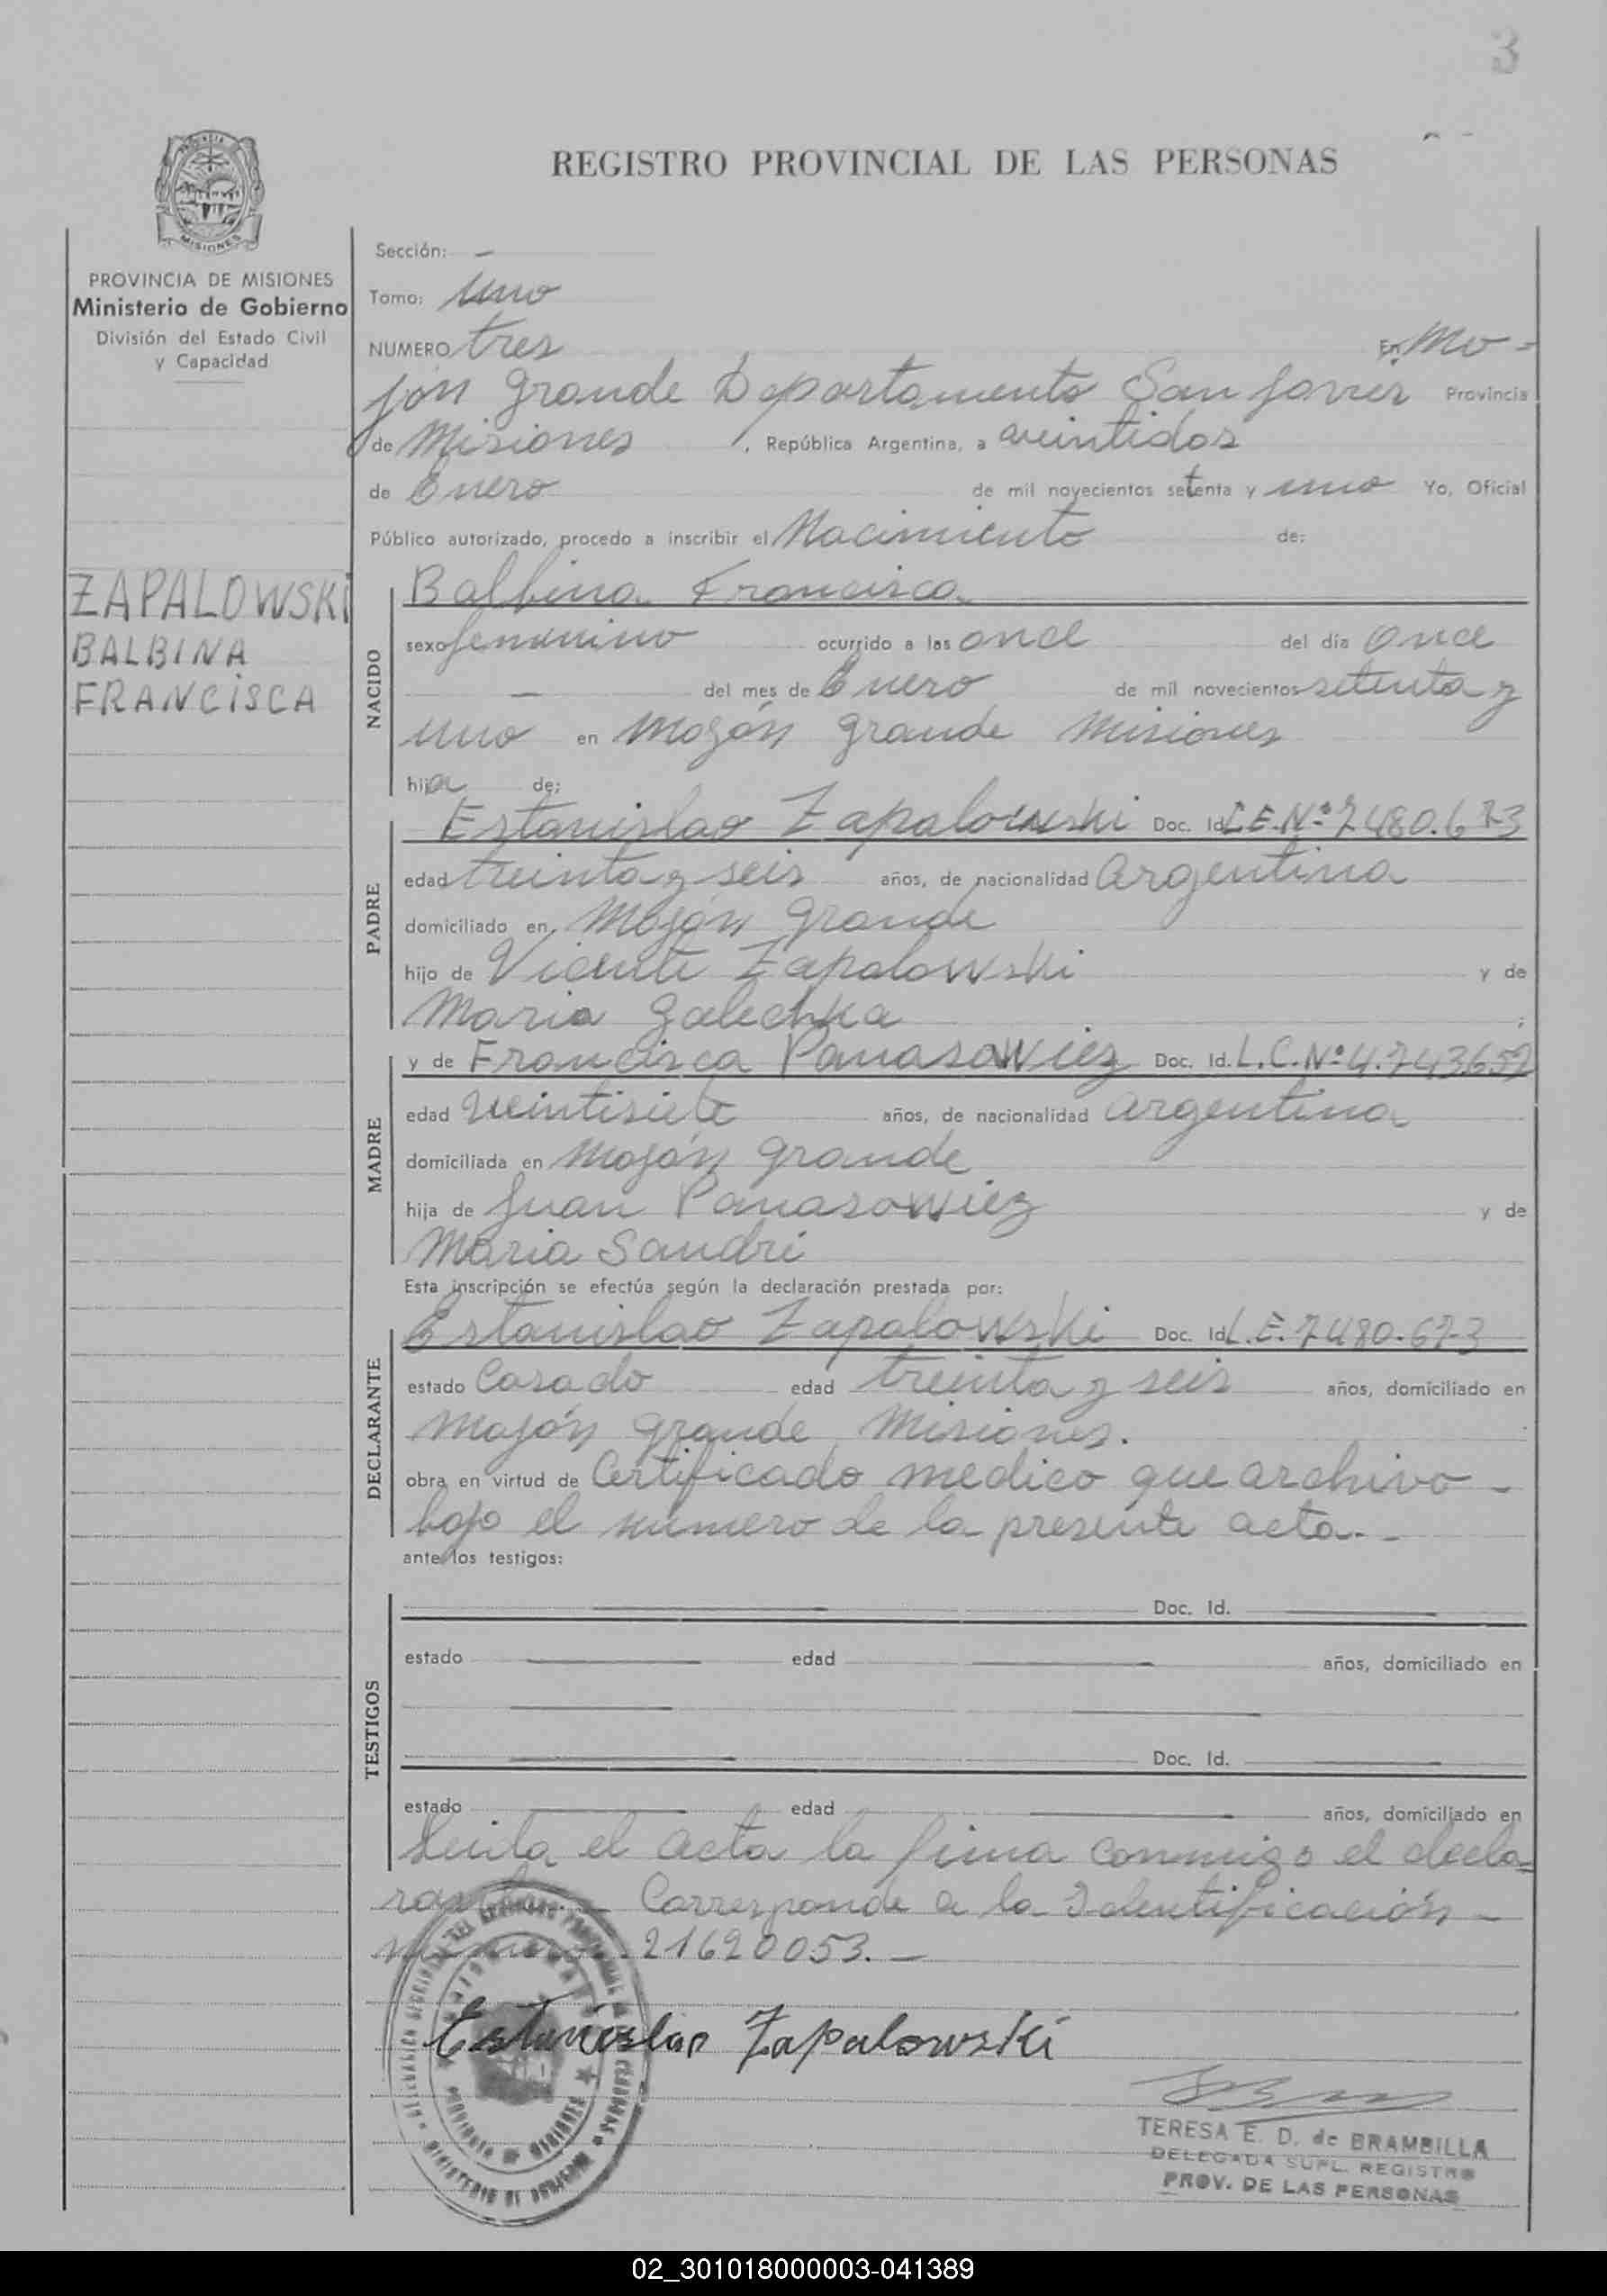 3
REGISTRO PROVINCIAL DE LAS PERSONAS
PROVINCIA
MISIONES
PROVINCIA DE MISIONES
Ministerio de Gobierno
División del Estado Civil
y Capacidad
ZAPALOWSKI
BALBINA
FRANCISCA
Sección: —
Tomo: Uno
NUMERO tres En Mo-
jón Grande Departamento San Javier Provincia
de Misiones, República Argentina, a veintidos
de Enero de mil novecientos setenta y uno Yo, Oficial
Público autorizado, procedo a inscribir el Nacimiento de:
NACIDO
Balbina Francisca
sexo femenino ocurrido a las once del día once
— del mes de Enero de mil novecientos setenta y
uno en Mojón Grande Misiones
hija de:
PADRE
Estanislao Zapalowski Doc. Id. L.E. Nº 7480.673
edad treinta y seis años, de nacionalidad Argentina
domiciliado en Mojón Grande
hijo de Vicente Zapalowski y de
Maria Galechka ;
MADRE
y de Francisca Panasowiez Doc. Id. L.C. Nº 4.743652
edad veintisiete años, de nacionalidad argentina
domiciliada en Mojón Grande
hija de Juan Panasowiez y de
Maria Sandri
Esta inscripción se efectúa según la declaración prestada por:
DECLARANTE
Estanislao Zapalowski Doc. Id. L.E. 7480.673
estado Casado edad treinta y seis años, domiciliado en
Mojón Grande Misiones.
obra en virtud de Certificado medico que archivo -
bajo el numero de la presente acta.-
ante los testigos:
TESTIGOS
Doc. Id.
estado edad años, domiciliado en
Doc. Id.
estado edad años, domiciliado en
Leida el acta la firma conmigo el decla=
rante.- Corresponde a la Identificación -
numero 21620053.-
Estanislao Zapalowski
TERESA E. D. de BRAMBILLA
DELEGADA SUPL. REGISTRO
PROV. DE LAS PERSONAS
PROVINCIA DE MISIONES
MINISTERIO DE GOBIERNO
02_301018000003-041389